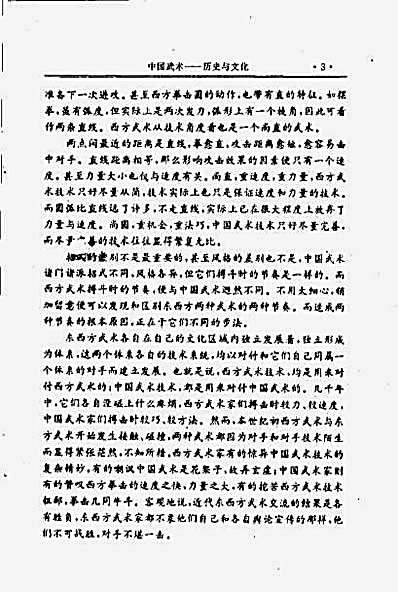 中国武术——历史与文化 ·3·
准备下一次进攻。甚至西方拳击圆的动作,也带有直的特征。如摆
拳,虽有弧度,但实际上是两次发力,弧形上有一个棱角,因此可看
作两条直线。西方武术从技术角度看也是一个尚直的武术。
两点间最近的距离是直线,拳愈直,攻击距离愈短,愈容易击
中对手。直线距离相等,那么影响攻击效果的因素便只有一个速
度。甚至力量大小也仅与速度有关。尚直,重速度,重力量,西方武
术技术只好尽量从简,技术实际上也只是保证速度和力量的技术。
而圆弧比直线远了许多,不走直线,实际上已在很大程度上放弃了
力量与速度。尚圆,重机会,重法巧,中国武术技术只好尽量完善,
而尽量完善的技术往往显得繁复无比。
招式的差别不是最重要的,甚至风格的差别也不是,中国武术
诸门诸派招式不同,风格各异,但它们搏斗时的节奏是一样的。而
西方武术搏斗时的节奏,便与中国武术迥然不同。不用太细心,稍
加留意便可以发现和区别东西方两种武术的两种节奏。而造成两
种节奏的根本原因,正在于它们不同的步法。
东西方武术各自在自己的文化区域内独立发展着,独立形成
为体系,这两个体系各自的技术系统,均以对付和它们自己同属一
个体系的对手而建立发展。也就是说,西方武术技术,均是用来对
付西方武术的;中国武术技术,都是用来对付中国武术的。几千年
中,它们各自没碰上什么麻烦,西方武术家们搏击时较力、较速度,
中国武术家们搏击时较巧、较方法。然而,本世纪初西方武术与东
方武术开始发生接触、碰撞,两种武术都因为对手和对手技术陌生
而显得紧张茫然,不知所措,西方武术家有的惊异中国武术技术的
复杂精妙,有的嘲讽中国武术是花架子,故弄玄虚;中国武术家则
有的赞叹西方拳击的速度之快、力量之大,有的挖苦西方武术技术
粗鄙,拳击几同牛斗。客观地说,近代东西方武术交流的结果是各
有胜负,东西方武术家都不象他们自己和各自舆论宣传的那样,他
们不可战胜,对手不堪一击。